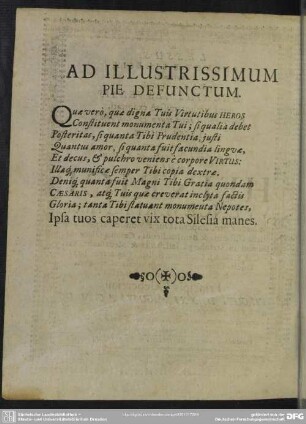 AD ILLUSTRISSIMUM
PIE DEFUNCTUM.
Quæ verò, quæ digna Tuis Virtutibus HEROS
Constituent monumenta Tui; si qualia debet
Posteritas, si quanta Tibi Prudentia, justi
Quantus amor, si quanta fuit facundia lingvæ,
Et decus, & pulchro veniens è corpore VIRTUS:
Illaq́; munificæ semper Tibi copia dextræ.
Deniq́; quanta fuit Magni Tibi Gratia quondam
CÆSARIS, atq́; Tuis quæ creverat inclyta factis
Gloria; tanta Tibi statuant monumenta Nepotes,
Ipsa tuos caperet vix tota Silesia manes.